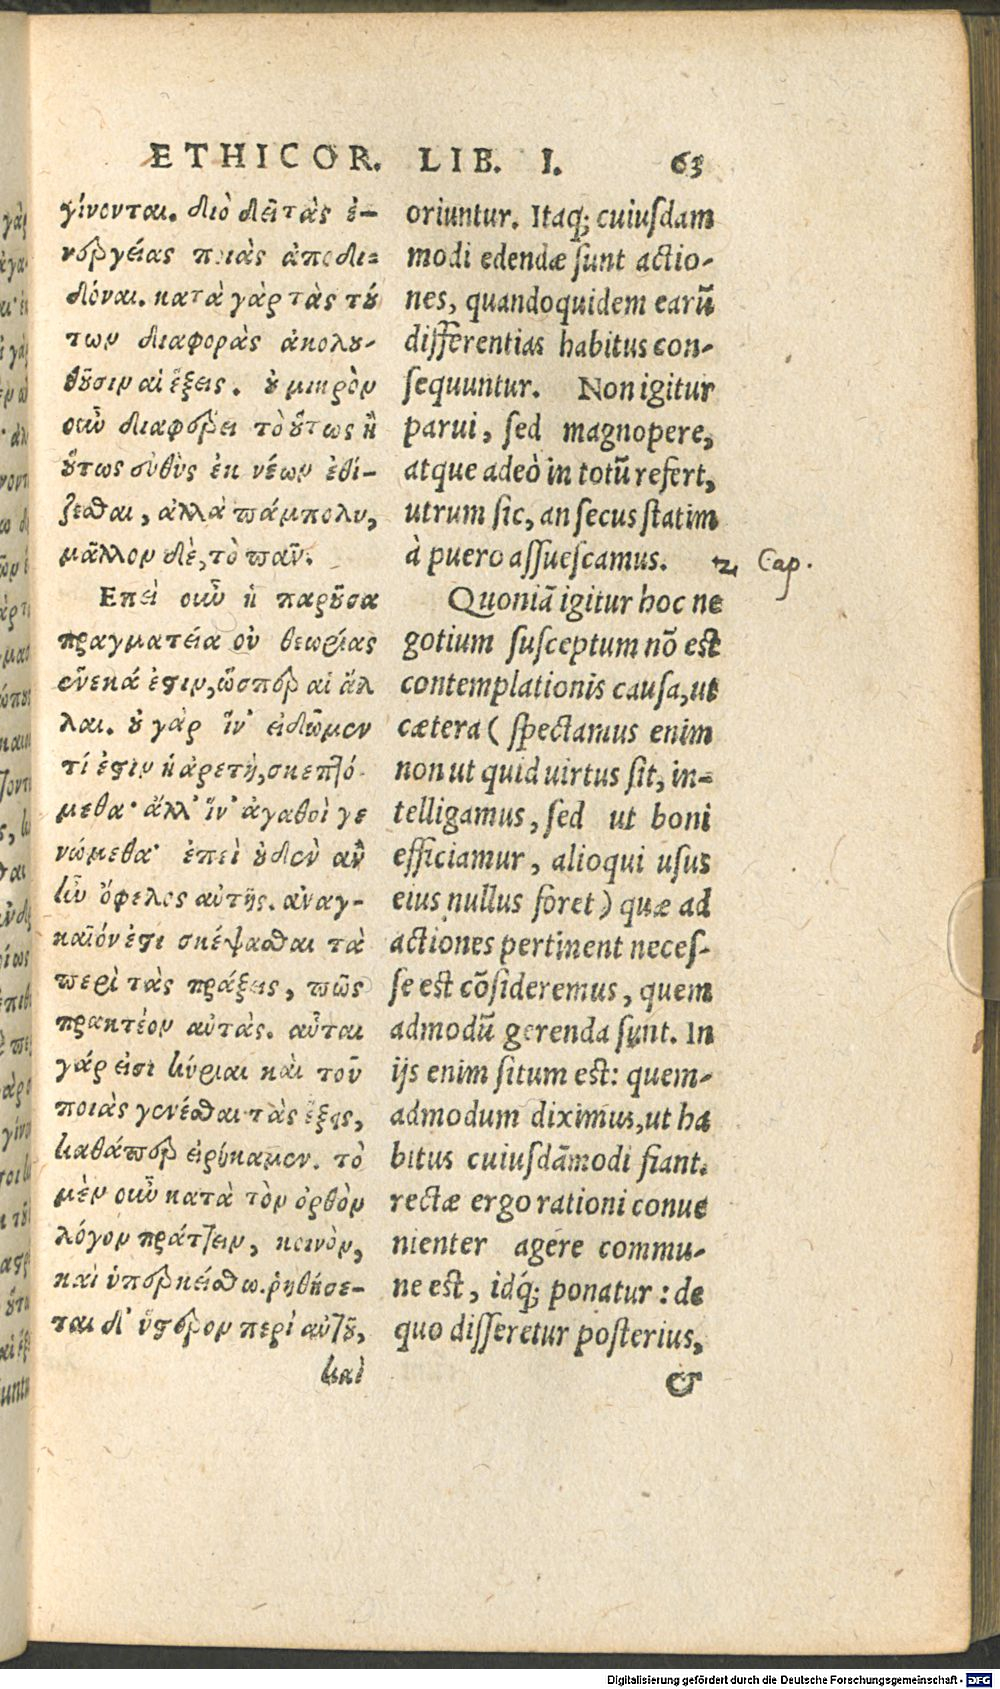 ETHICOR. LIB. I. 63
γίνονται. διὸ δεῖ τὰς ἐ-
νεργείας ποιὰς ἀποδι-
δόναι. κατὰ γὰρ τὰς τού
των διαφορὰς ἀκολου-
θοῦσιν αἱ ἕξεις. οὐ μικρὸν
οὖν διαφέρει τὸ οὕτως ἢ
οὕτως εὐθὺς ἐκ νέων ἐθί-
ζεσθαι, ἀλλὰ πάμπολυ,
μᾶλλον δὲ, τὸ πᾶν.
Επεὶ οὖν ἡ παροῦσα
πραγματεία οὐ θεωρίας
ἕνεκά ἐστιν, ὥσπερ αἱ ἄλ
λαι. οὐ γὰρ ἵν' εἰδῶμεν
τί ἐστιν ἡ ἀρετὴ, σκεπτό-
μεθα· ἀλλ' ἵν' ἀγαθοὶ γε
νώμεθα· ἐπεὶ οὐδὲν ἂν
ἦν ὄφελος αὐτῆς. ἀναγ-
καῖόν ἐστι σκέψασθαι τὰ
περὶ τὰς πράξεις, πῶς
πρακτέον αὐτάς. αὗται
γάρ εἰσι κύριαι καὶ τοῦ
ποιὰς γενέσθαι τὰς ἕξεις,
καθάπερ εἰρήκαμεν. τὸ
μὲν οὖν κατὰ τὸν ὀρθὸν
λόγον πράττειν, κοινὸν,
καὶ ὑπερκείσθω. ῥηθήσε-
ται δ' ὕστερον περὶ αὐτοῦ,
καὶ
oriuntur. Itaq; cuiusdam
modi edendæ sunt actio-
nes, quandoquidem earū
differentias habitus con-
sequuntur. Non igitur
parui, sed magnopere,
atque adeò in totū refert,
utrum sic, an secus statim
à puero assuescamus.
2 Cap.
Quoniā igitur hoc ne
gotium susceptum nō est
contemplationis causa, ut
cætera ( spectamus enim
non ut quid uirtus sit, in-
telligamus, sed ut boni
efficiamur, alioqui usus
eius nullus foret ) quæ ad
actiones pertinent neces-
se est cōsideremus, quem
admodū gerenda sunt. In
ijs enim situm est: quem-
admodum diximus, ut ha
bitus cuiusdāmodi fiant.
rectæ ergo rationi conue
nienter agere commu-
ne est, idq́; ponatur : de
quo disseretur posterius,
&
Digitalisierung gefördert durch die Deutsche Forschungsgemeinschaft - DFG